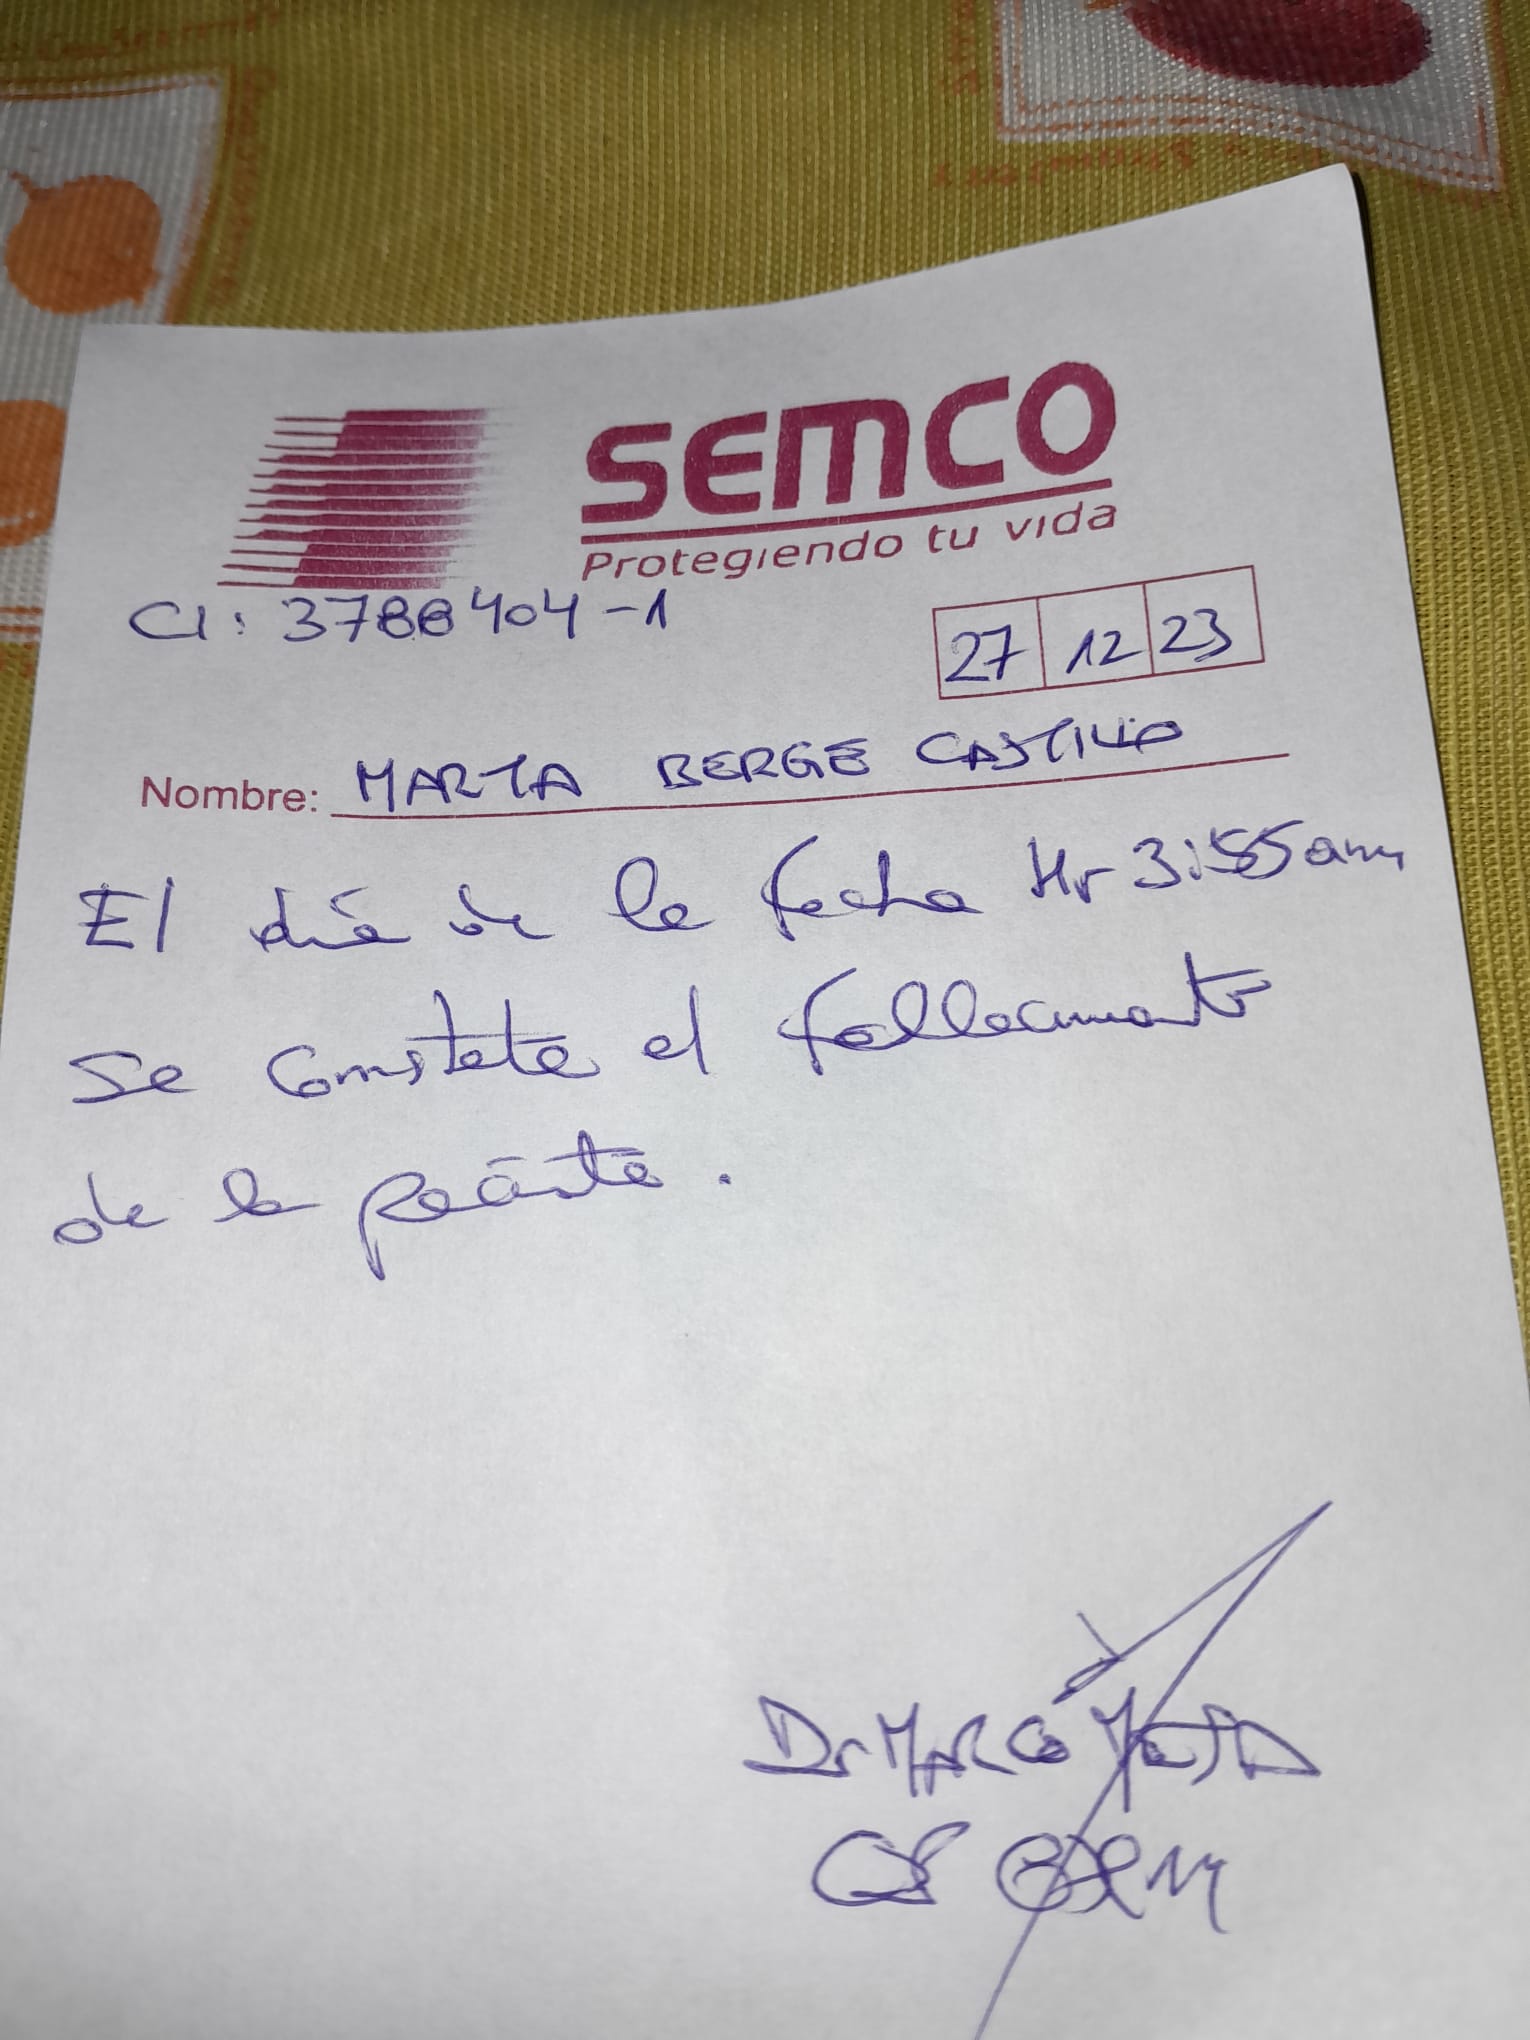 SEMCO
Protegiendo tu vida
CI: 3788404-1
27 12 23
Nombre: MARTA BERGE CASTILLO
El día de la fecha Hr 3:55am
se constata el fallecimiento
de la paciente.
Dr MARCO